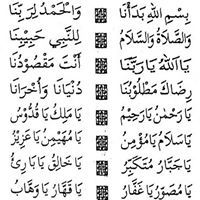 بِسْمِ اللهِ بَدَأْنَا وَالْحَمْدُ لِرَبِّنَا
وَالصَّلَاةُ وَالسَّلَامُ لِلنَّبِي حَبِيْبِنَا
يَا اَللهُ يَا رَبَّنَا أَنْتَ مَقْصُوْدُنَا
رِضَاكَ مَطْلُوْبُنَا دُنْيَانَا وَأُخْرَانَا
يَا رَحْمٰنُ يَا رَحِيْمُ يَا مَلِكُ يَا قُدُّوْسُ
يَا سَلَامُ يَا مُؤْمِنُ يَا مُهَيْمِنُ يَا عَزِيْزُ
يَا جَبَّارُ مُتَكَبِّرُ يَا خَالِقُ يَا بَارِئُ
يَا مُصَوِّرُ يَا غَفَّارُ يَا قَهَّارُ يَا وَهَّابُ